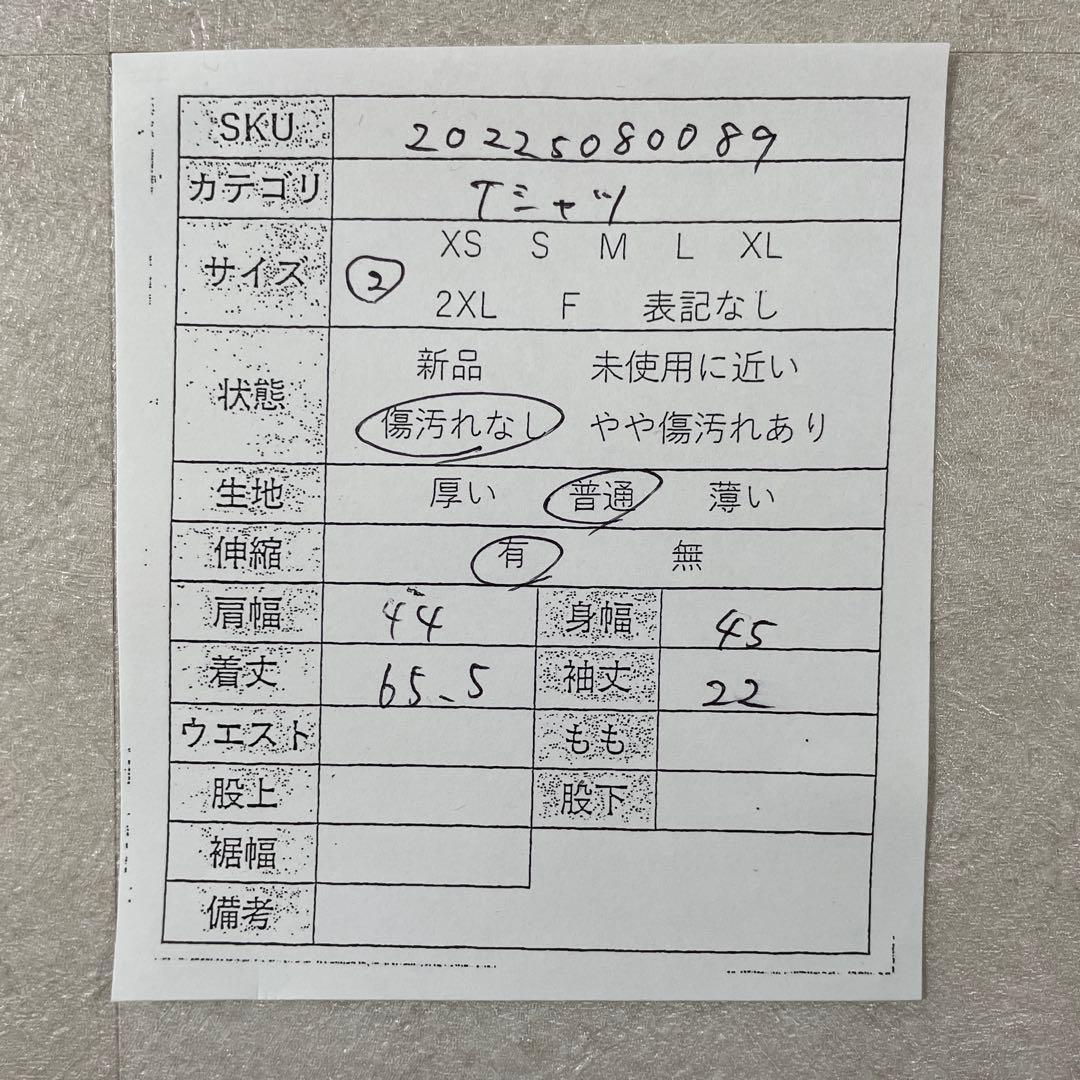 SKU 20225080089
カテゴリ Tシャツ
サイズ ② XS S M L XL
2XL F 表記なし
状態 新品 未使用に近い
傷汚れなし やや傷汚れあり
生地 厚い 普通 薄い
伸縮 有 無
肩幅 44 身幅 45
着丈 65.5 袖丈 22
ウエスト もも
股上 股下
裾幅
備考